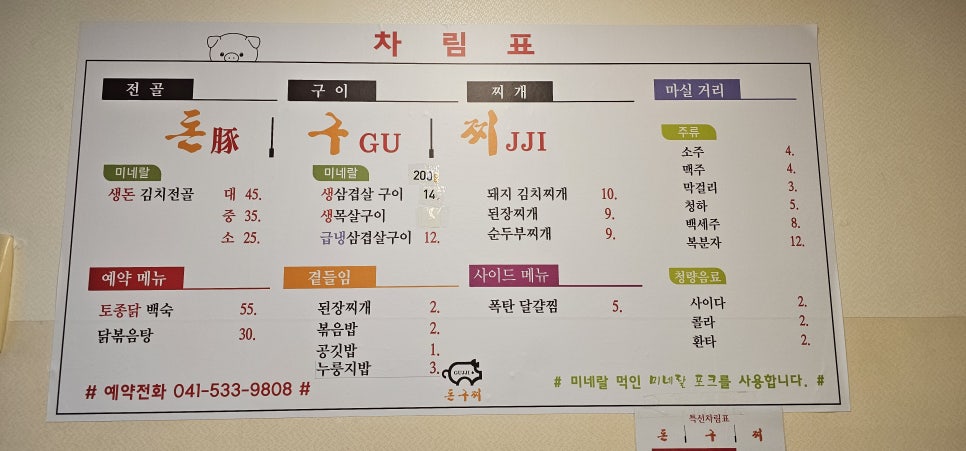 차 림 표
전 골
돈 豚
미네랄
생돈 김치전골 대 45.
중 35.
소 25.
구 이
구 GU
미네랄 200g
생삼겹살 구이 14
생목살구이
급냉삼겹살구이 12.
찌 개
찌 JJI
돼지 김치찌개 10.
된장찌개 9.
순두부찌개 9.
마실 거리
주류
소주 4.
맥주 4.
막걸리 3.
청하 5.
백세주 8.
복분자 12.
예약 메뉴
토종닭 백숙 55.
닭볶음탕 30.
곁들임
된장찌개 2.
볶음밥 2.
공깃밥 1.
누룽지밥 3.
사이드 메뉴
폭탄 달걀찜 5.
청량음료
사이다 2.
콜라 2.
환타 2.
# 예약전화 041-533-9808 #
GUJJI
돈구찌
# 미네랄 먹인 미네랄 포크를 사용합니다. #
특선차림표
돈 구 찌